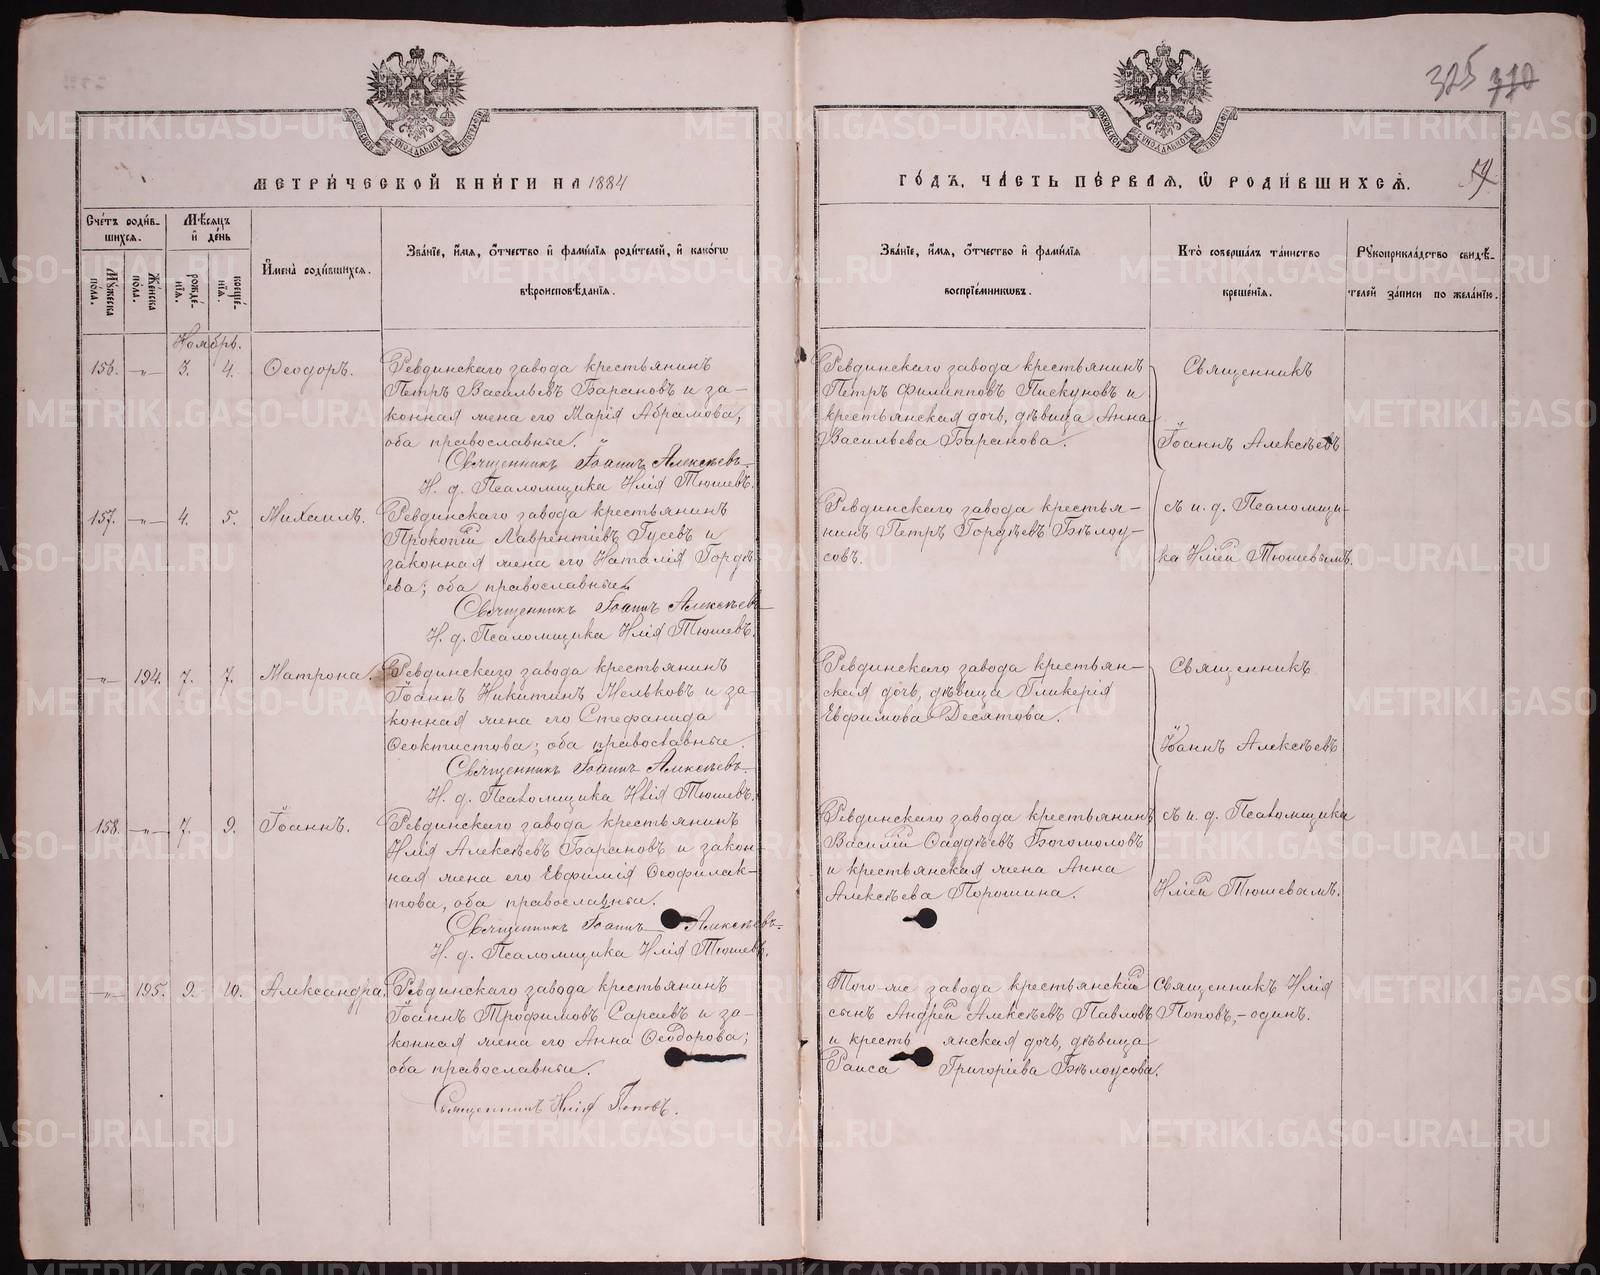 325 370
МОСКОВСКОЙ СѴНОДАЛЬНОЙ ТИПОГРАФІИ
МОСКОВСКОЙ СѴНОДАЛЬНОЙ ТИПОГРАФІИ
МЕТРИ́ЧЕСКОЙ КНИ́ГИ НА 1884
ГО́ДЪ, ЧА́СТЬ ПЕ́РВАЯ, Ѽ РОДИ́ВШИХСЯ.
Сче́тъ роди́в-
шихся.
Мѣ́сяцъ
и҆ де́нь
Мꙋ́жеска по́ла.
Же́нска по́ла.
рожде́-нїѧ.
креще́-нїѧ.
И҆мена̀ роди́вшихся.
Зва́нїе, и҆́мѧ, ѻ҆́тчество и҆ фами́лїѧ роди́телей, и҆ како́гѡ
вѣроисповѣ́данїѧ.
Зва́нїе, и҆́мѧ, ѻ҆́тчество и҆ фами́лїѧ
воспрїе́мникѡвъ.
Кто̀ соверша́лъ та́инство
креще́нїѧ.
Рꙋкоприкла́дство свидѣ́-
телей за́писи по жела́нїю.
Ноябрь.
156. -„- 3. 4. Ѳеодоръ.
Ревдинскаго завода крестьянинъ
Петръ Васильевъ Барановъ и за-
конная жена его Марія Абрамова,
оба православные.
Священникъ Іоаннъ Алексѣевъ.
И. д. Псаломщика Илія Тюшевъ.
Ревдинскаго завода крестьянинъ
Петръ Филипповъ Пискуновъ и
крестьянская дочь, дѣвица Анна
Васильева Баранова.
Священникъ
Іоаннъ Алексѣевъ
157. -„- 4. 5. Михаилъ.
Ревдинскаго завода крестьянинъ
Прокопій Лаврентіевъ Гусевъ и
законная жена его Наталія Гордѣ
ева; оба православные.
Священникъ Іоаннъ Алексѣевъ
И. д. Псаломщика Илія Тюшевъ.
Ревдинскаго завода крестья-
нинъ Петръ Гордѣевъ Бѣлоу-
совъ.
съ и. д. Псаломщи-
ка Иліей Тюшевымъ.
-„- 194. 7. 7. Матрона.
Ревдинскаго завода крестьянинъ
Іоаннъ Никитинъ Мельковъ и за-
конная жена его Стефанида
Ѳеоктистова; оба православные.
Священникъ Іоаннъ Алексѣевъ.
И. д. Псаломщика Илія Тюшевъ.
Ревдинскаго завода крестьян-
ская дочь, дѣвица Гликерія
Евфимова Десятова.
Священникъ
Іоаннъ Алексѣевъ
158. -„- 7. 9. Іоаннъ.
Ревдинскаго завода крестьянинъ
Илія Алексѣевъ Барановъ и закон-
ная жена его Евфимія Ѳеофилак-
това, оба православные.
Священникъ Іоаннъ Алексѣевъ.
И. д. Псаломщика Илія Тюшевъ.
Ревдинскаго завода крестьянинъ
Василій Ѳаддѣевъ Богомоловъ
и крестьянская жена Анна
Алексѣева Порошина.
съ и. д. Псаломщика
Иліей Тюшевымъ.
-„- 195. 9. 10. Александра.
Ревдинскаго завода крестьянинъ
Іоаннъ Трофимовъ Сараевъ и за-
конная жена его Анна Ѳеодорова;
оба православные.
Священникъ Илія Поповъ.
Того-же завода крестьянскій
сынъ Андрей Алексѣевъ Павловъ
и крестьянская дочь, дѣвица
Раиса Григоріева Бѣлоусова.
Священникъ Илія
Поповъ,-одинъ.
METRIKI.GASO-URAL.RU